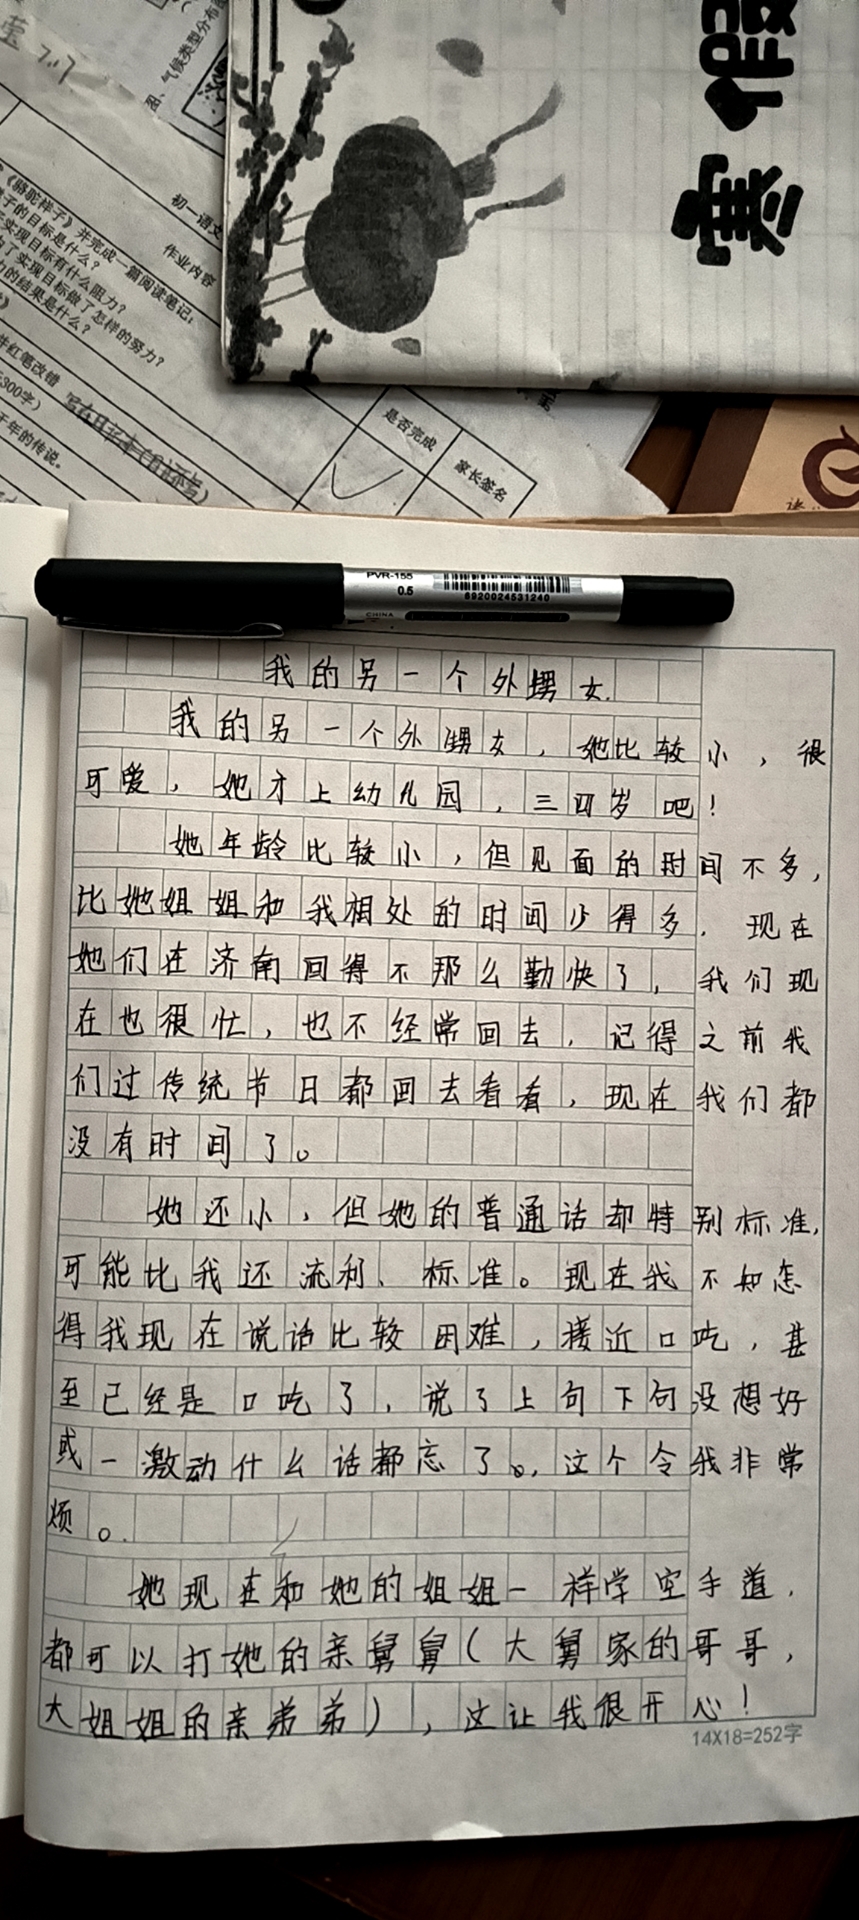 寒假
莹 7.17
图、气候类型分布图
初一语文
作业内容
《骆驼祥子》并完成一篇阅读笔记：
子的目标是什么？
实现目标有什么阻力？
了实现目标做了怎样的努力？
的结果是什么？
并红笔改错
300字）
千年的传说。
是否完成
家长签名
PVR-155
0.5
CHINA
6920024531240
我的另一个外甥女.
我的另一个外甥女，她比较小，很
可爱，她才上幼儿园，三四岁吧！
她年龄比较小，但见面的时间不多，
比她姐姐和我相处的时间少得多．现在
她们在济南回得不那么勤快了，我们现
在也很忙，也不经常回去．记得之前我
们过传统节日都回去看看，现在我们都
没有时间了。
她还小，但她的普通话却特别标准，
可能比我还流利、标准。现在我不知怎
得我现在说话比较困难，接近口吃，甚
至已经是口吃了，说了上句下句没想好
或一激动什么话都忘了。，这个令我非常
烦。
她现在和她的姐姐一样学空手道，
都可以打她的亲舅舅（大舅家的哥哥，
大姐姐的亲弟弟），这让我很开心！
14X18=252字